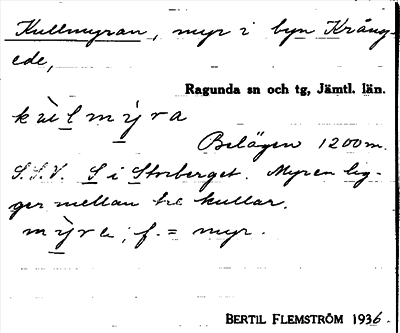 Kullmyran, myr i byn Krång-
ede,
Ragunda sn och tg, Jämtl. län.
kùlmỳra
Belägen 1200 m.
S.S.V. S i Storberget. Myren lig-
ger mellan tre kullar.
mỳre, f. = myr.
BERTIL FLEMSTRÖM 1936.